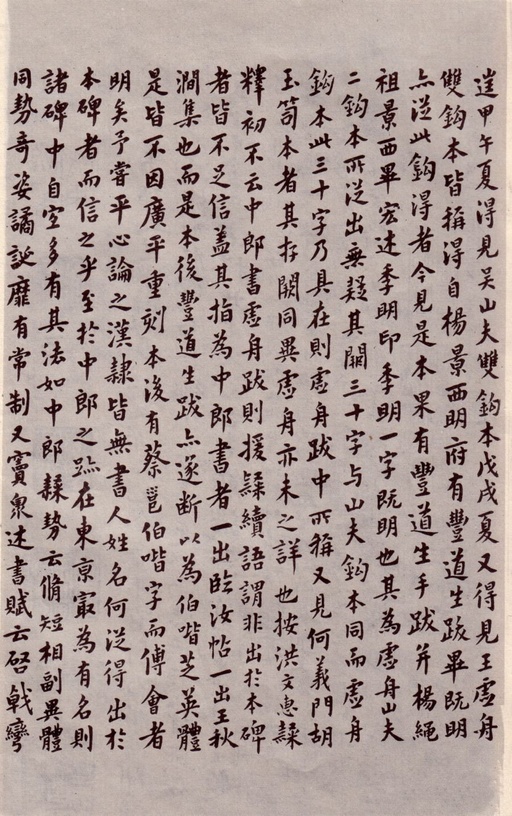 逹甲午夏得見吴山夫雙鈎本戊戌夏又得見王虚舟
雙鈎本皆稱得自楊景西明府有豐道生跋畢既明
亦從此鈎得者今見是本果有豐道生手跋并楊繩
祖景西畢宏述季明印季明一字既明也其為虚舟山夫
二鈎本所從出無疑其闕三十字与山夫鈎本同而虚舟
鈎本此三十字乃具在則虚舟跋中所稱又見何義門胡
玉笥本者其存闕同異虚舟亦未之詳也按洪文惠隸
釋初不云中郎書虚舟跋則援隸續語謂非出於本碑
者皆不足信蓋其指為中郎書者一出臨汝帖一出王秋
澗集也而是本後豐道生跋亦遂斷以為伯喈芝英體
是皆不因廣平重刻本後有蔡邕伯喈字而傅會者
明矣予嘗平心論之漢隸皆無書人姓名何從得出於
本碑者而信之乎至於中郎之蹟在東京冣為有名則
諸碑中自空多有其法如中郎隸勢云脩短相副異體
同勢奇姿譎誕靡有常制又竇泉述書賦云啓戟彎